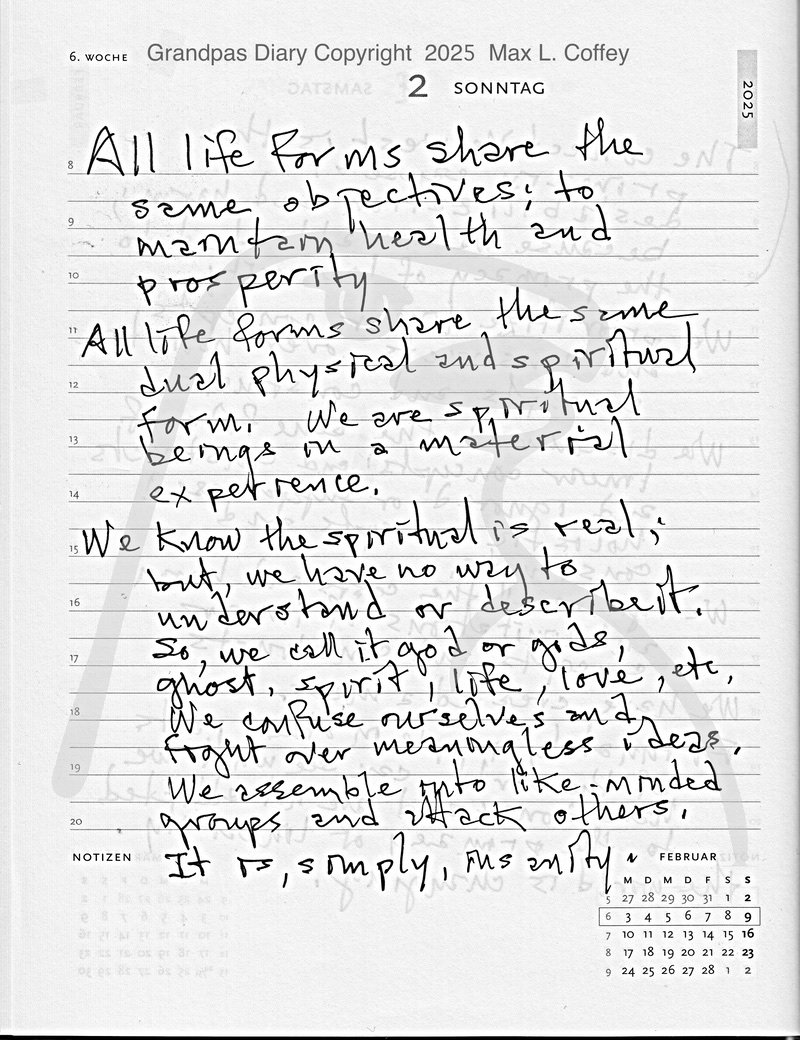 6. WOCHE Grandpas Diary Copyright 2025 Max L. Coffey
2 SONNTAG
2025
8 All life forms share the
same objectives; to
9 maintain health and
10 prosperity
11 All life forms share the same
dual physical and spiritual
12 form. We are spiritual
13 beings in a material
14 experience.
15 We know the spiritual is real;
but, we have no way to
16 understand or describe it.
So, we call it god or gods,
17 ghost, spirit, life, love, etc,
18 We confuse ourselves and
fight over meaningless ideas.
19 We assemble into like-minded
20 groups and attack others.
NOTIZEN It is, simply, insanity
FEBRUAR
M D M D F S S
5 27 28 29 30 31 1 2
6 3 4 5 6 7 8 9
7 10 11 12 13 14 15 16
8 17 18 19 20 21 22 23
9 24 25 26 27 28 1 2